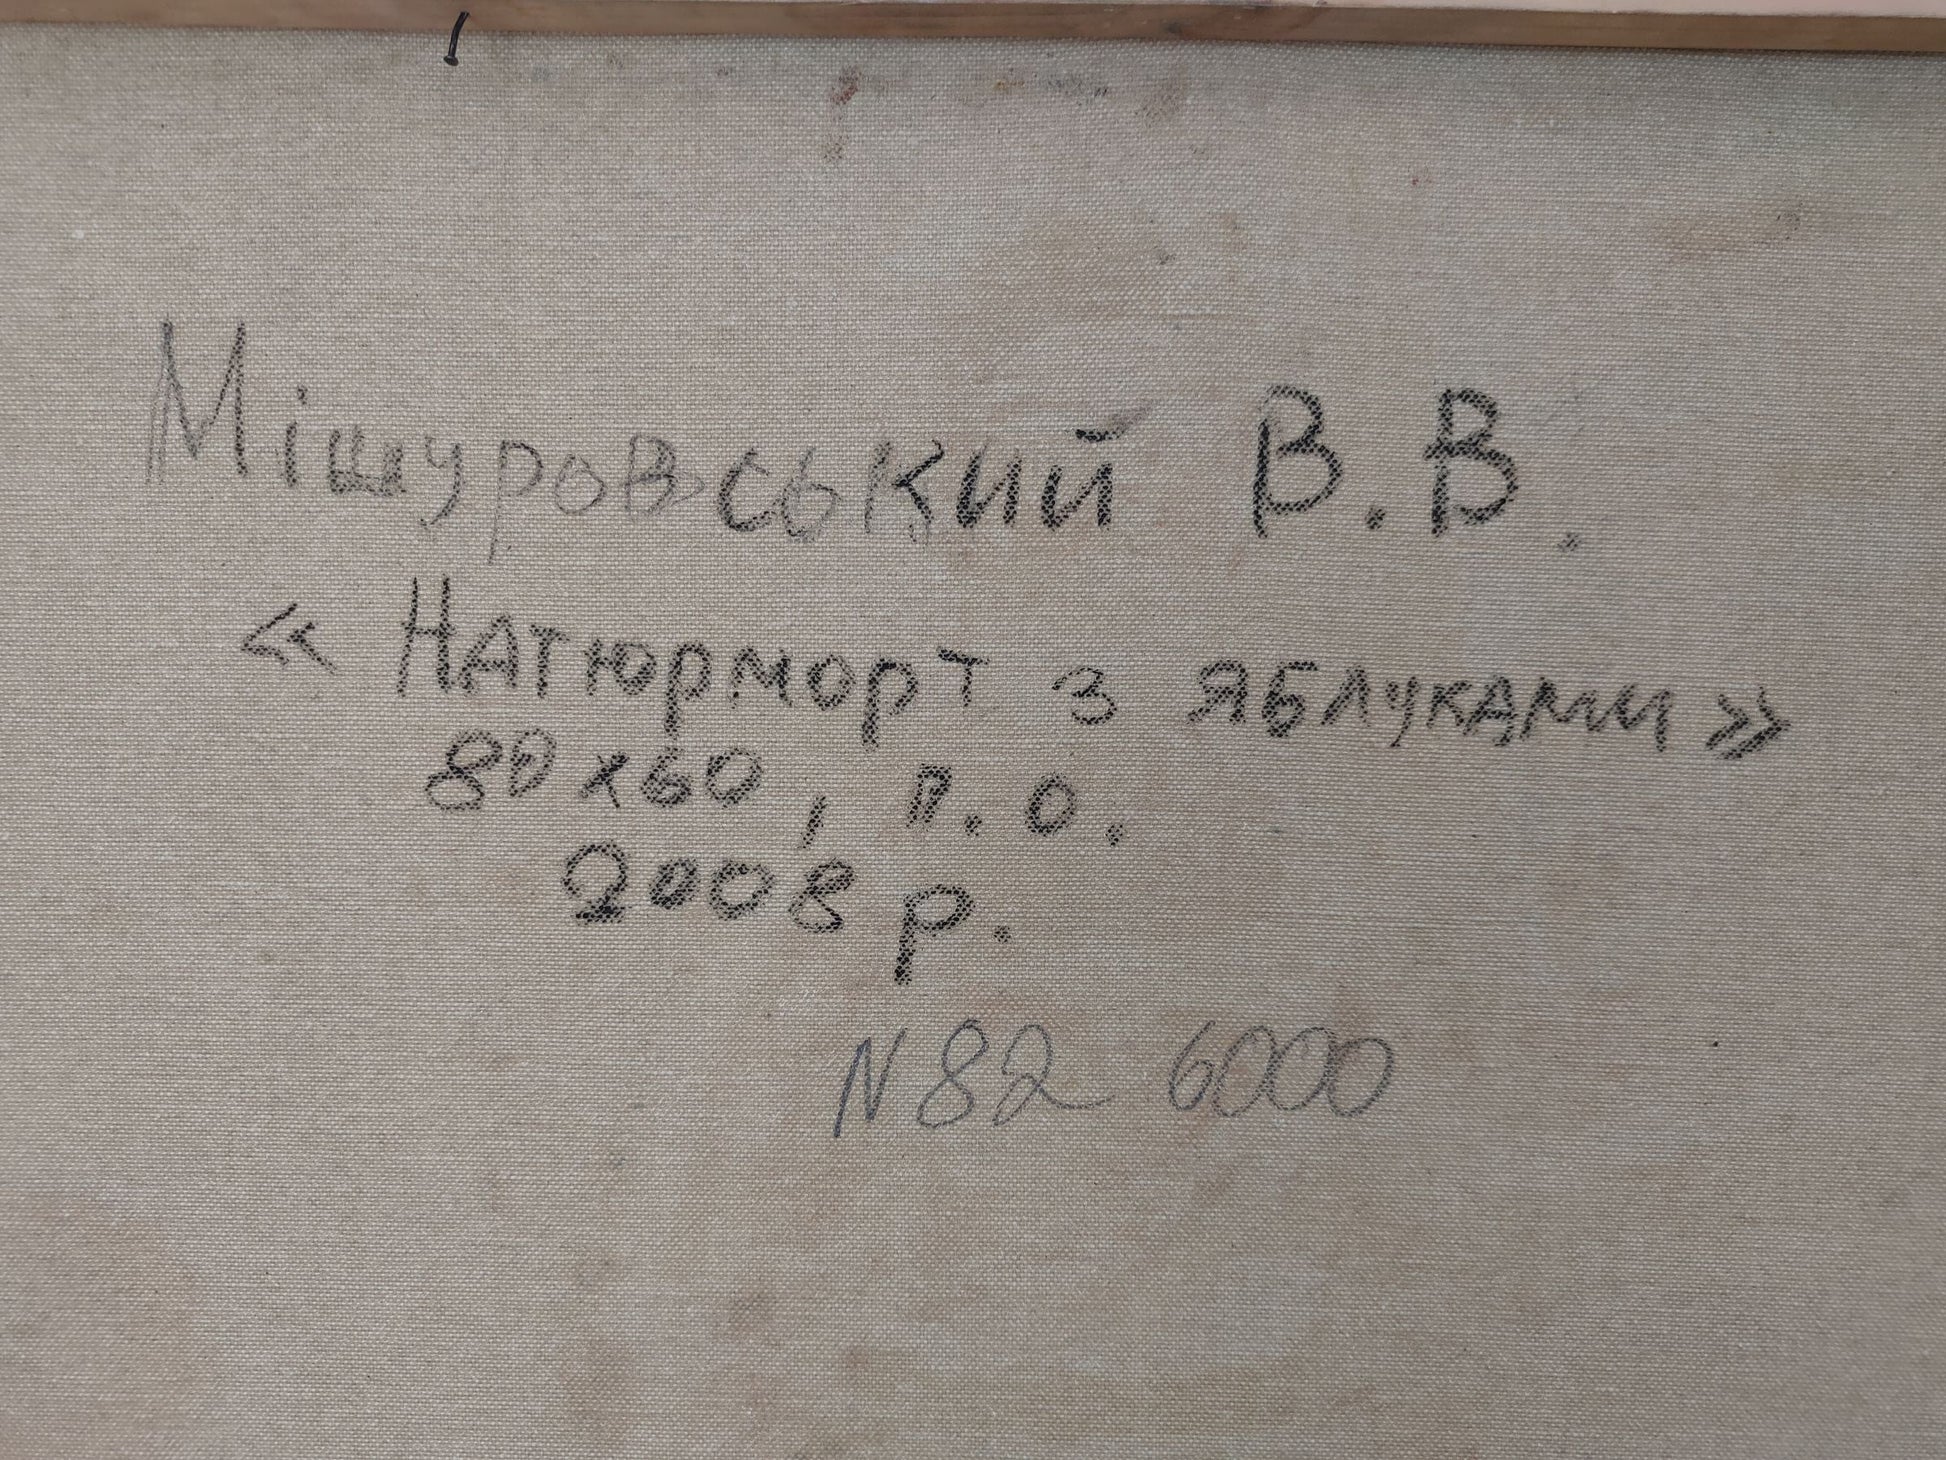 Мішуровський В.В.
« Натюрморт з яблуками »
80 х 60, п. о.
2008 р.
N 82 6000